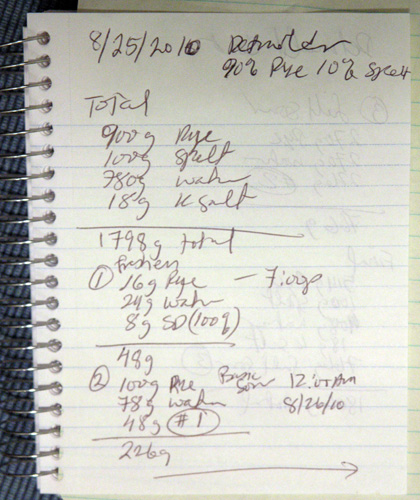 8/25/2010 Detmolder
90% Rye 10% Spelt
Total
900g Rye
100g Spelt
780g water
18g K Salt
1798g total
① Freshen
16g Rye — 7:00p
24g water
8g SD (100%)
48g
② 100g Rye Basic Sour 12:01AM
78g water 8/26/10
48g #1
226g